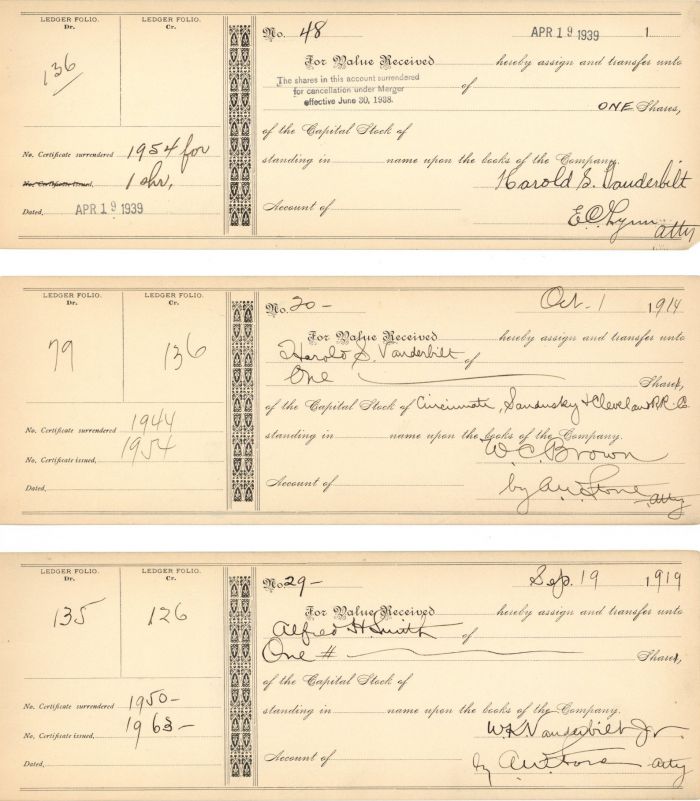 LEDGER FOLIO. Dr.
LEDGER FOLIO. Cr.
136
No. Certificate surrendered 1954 for
No. Certificate issued, 1 shr,
Dated, APR 19 1939
No. 48 APR 19 1939 1
For Value Received hereby assign and transfer unto
The shares in this account surrendered
for cancellation under Merger
effective June 30, 1938.
of
ONE Shares,
of the Capital Stock of
standing in name upon the books of the Company.
Harold S. Vanderbilt
Account of
E.C. Lynn atty
LEDGER FOLIO. Dr.
LEDGER FOLIO. Cr.
79 136
No. Certificate surrendered 1944
No. Certificate issued, 1954
Dated,
No. 20- Oct. 1 1914
For Value Received hereby assign and transfer unto
Harold S. Vanderbilt of
One Shares,
of the Capital Stock of Cincinnati, Sandusky & Cleveland R.R. Co.
standing in name upon the books of the Company.
W.C. Brown
Account of by A.W. Stone atty
LEDGER FOLIO. Dr.
LEDGER FOLIO. Cr.
135 126
No. Certificate surrendered 1950-
No. Certificate issued, 1963-
Dated,
No. 29- Sep. 19 1919
For Value Received hereby assign and transfer unto
Alfred H. Smith of
One # Shares,
of the Capital Stock of
standing in name upon the books of the Company.
W.K. Vanderbilt Jr.
Account of by A.W. Stone Atty